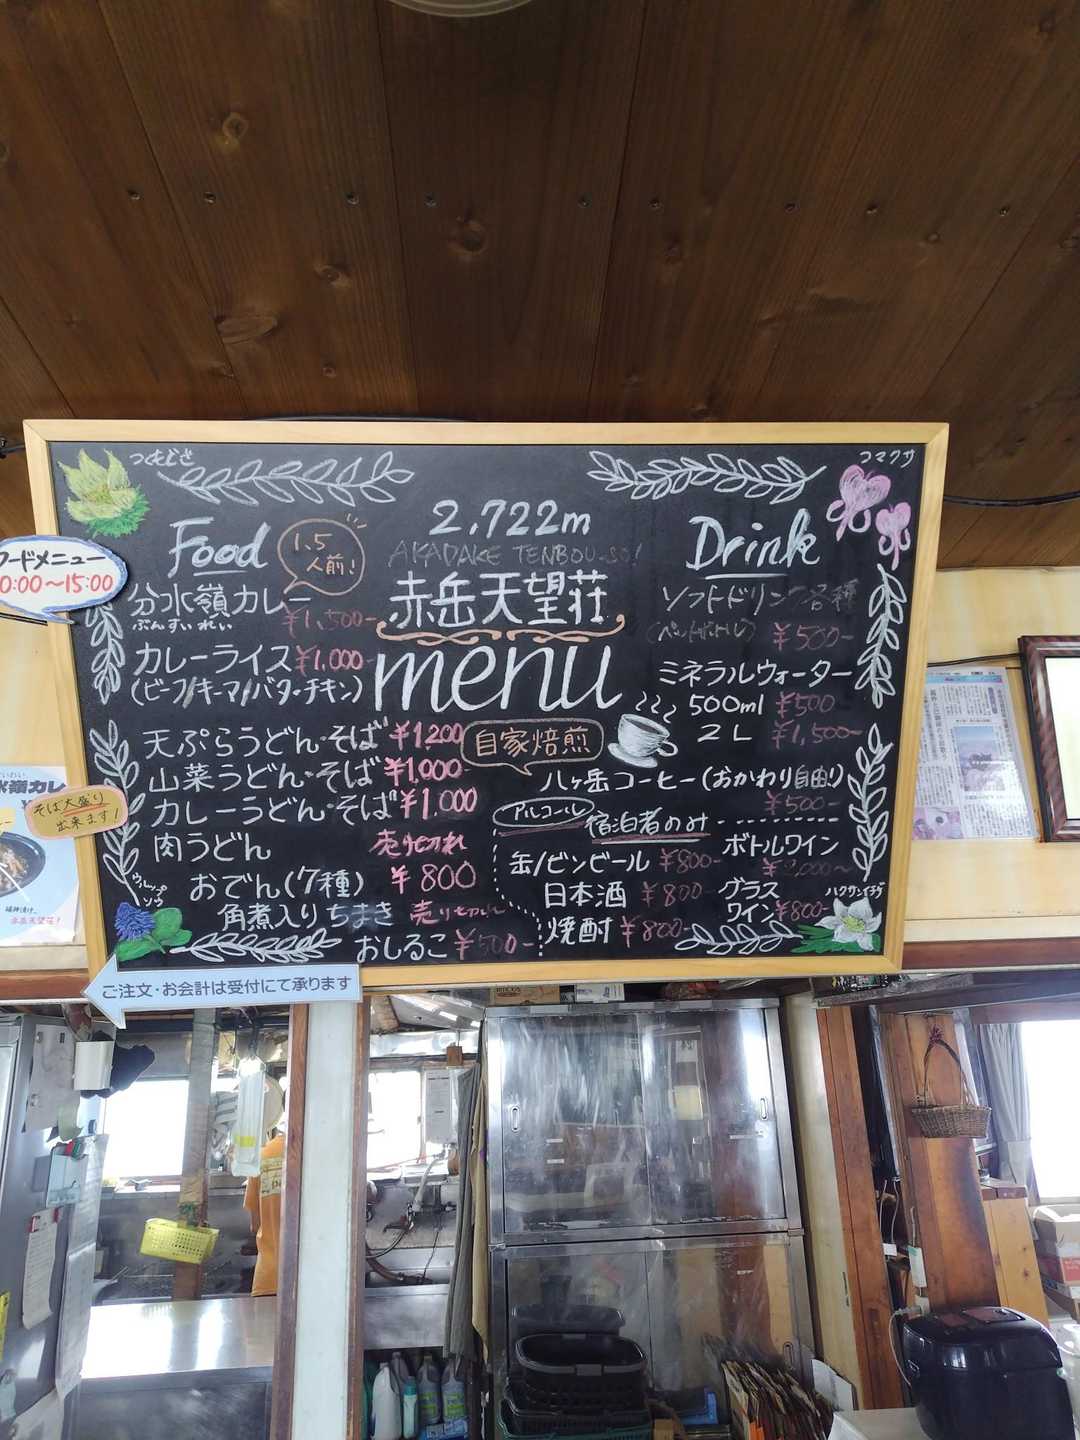 つくもぐさ
コマクサ
2,722m
AKADAKE TENBOU-SO!
赤岳天望荘
menu
Food
1.5
人前!
フードメニュー
0:00～15:00
分水嶺カレー
ぶんすいれい
¥1,500-
カレーライス ¥1,000-
(ビーフ/キーマ/バターチキン)
天ぷらうどん・そば ¥1200
山菜うどん・そば ¥1,000-
カレーうどん・そば ¥1,000
そば大盛り
出来ます!
肉うどん 売り切れ
おでん(7種) ¥800
角煮入りちまき 売り切れ
おしるこ ¥500-
ウルップ
ソウ
Drink
ソフトドリンク各種
(ペットボトル) ¥500-
ミネラルウォーター
500ml ¥500
2L ¥1,500-
自家焙煎
八ヶ岳コーヒー(おかわり自由)
¥500-
アルコール
宿泊者のみ
缶/ビンビール ¥800-
日本酒 ¥800-
焼酎 ¥800-
ボトルワイン
¥2,000～
グラス
ワイン ¥800-
ハクサンイチゲ
ご注文・お会計は受付にて承ります
水嶺カレ
福神漬け、
赤岳天望荘!